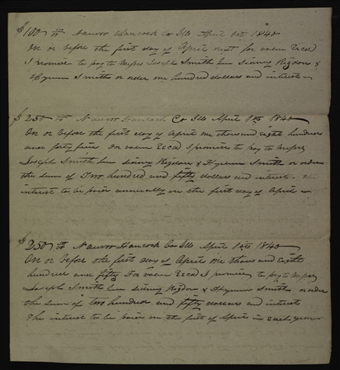 $100 Nauvoo Hancock Co Ills April 1st 1840
On or before the first day of April next for value Recd
I promise to pay to Joseph Smith Sidney Rigdon &
Hyrum Smith or order one hundred dollars and interest
$250 Nauvoo Hancock Co Ills April 1st 1840
On or before the first day of April one thousand eight hundred
and forty five for value Recd I promise to pay to
Joseph Smith Sidney Rigdon & Hyrum Smith or order
the sum of Two hundred and fifty dollars and interest
interest to be paid annually on the first day of April
$250 Nauvoo Hancock Co Ills April 1st 1840
On or before the first day of April One thous and eight
hundred and fifty for value Recd I promise to pay to
Joseph Smith Sidney Rigdon & Hyrum Smith or order
the sum of two hundred and fifty dollars and interest
The interest to be paid on the first of April in each year